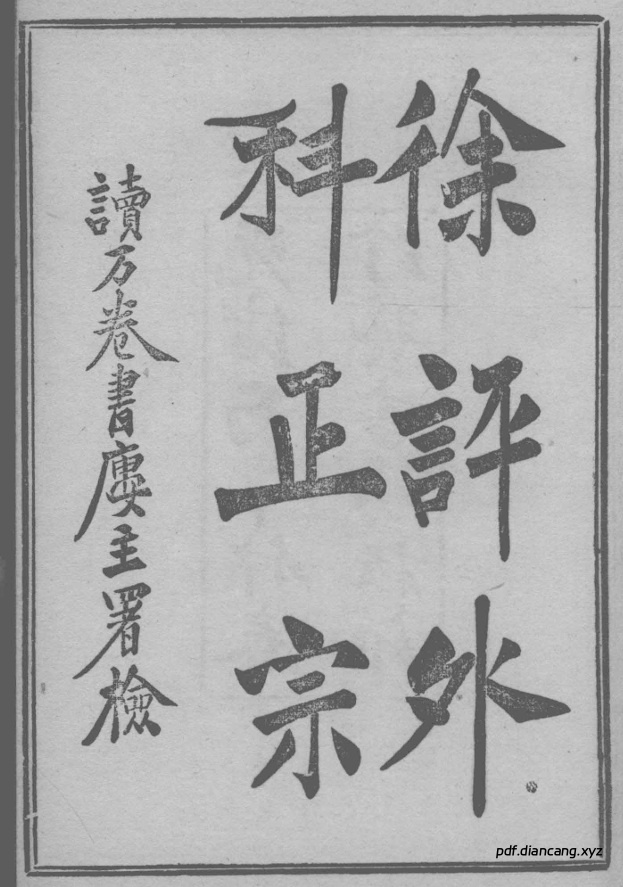 徐評外
科正宗
讀万卷書廔主署檢
pdf.diancang.xyz